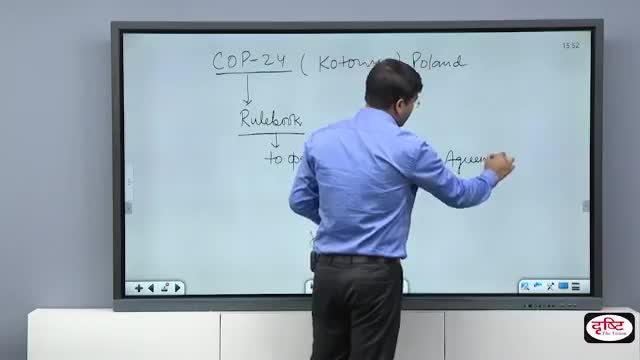 15:52
COP-24 ( Kotow ) Poland
Rulebook
to
Agreem
दृष्टि
The Vision